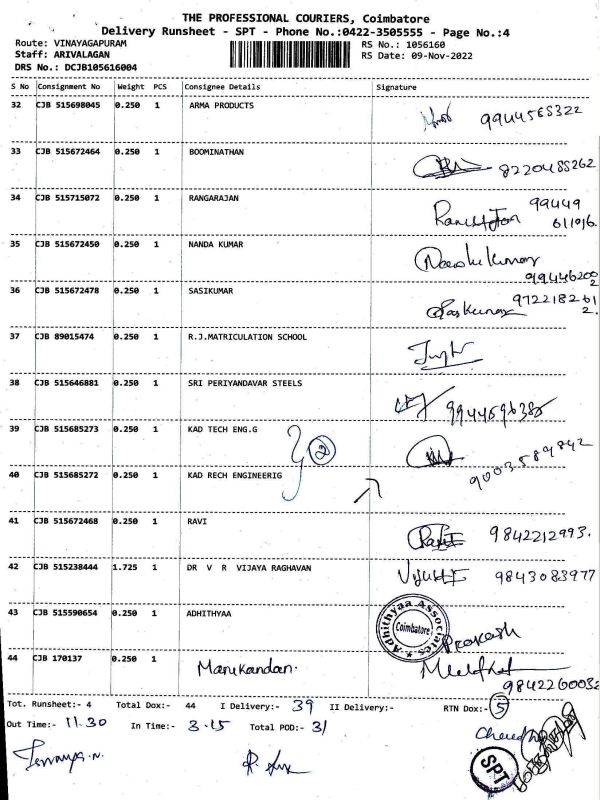 THE PROFESSIONAL COURIERS, Coimbatore
Delivery Runsheet - SPT - Phone No.:0422-3505555 - Page No.:4
Route: VINAYAGAPURAM RS No.: 1056160
Staff: ARIVALAGAN RS Date: 09-Nov-2022
DRS No.: DCJB105616004
S No Consignment No Weight PCS Consignee Details Signature
32 CJB 515698045 0.250 1 ARMA PRODUCTS 9944565322
33 CJB 515672464 0.250 1 BOOMINATHAN 8220485262
34 CJB 515715072 0.250 1 RANGARAJAN 99449
611016.
35 CJB 515672450 0.250 1 NANDA KUMAR Nandakumar
36 CJB 515672478 0.250 1 SASIKUMAR Sasikumar
37 CJB 89015474 0.250 1 R.J.MATRICULATION SCHOOL
38 CJB 515646881 0.250 1 SRI PERIYANDAVAR STEELS
39 CJB 515685273 0.250 1 KAD TECH ENG.G 2 9003589842
40 CJB 515685272 0.250 1 KAD RECH ENGINEERIG
41 CJB 515672468 0.250 1 RAVI Ravi 9842212993.
42 CJB 515238444 1.725 1 DR V R VIJAYA RAGHAVAN 9843083977
43 CJB 515590654 0.250 1 ADHITHYAA Adhithyaa Associates Coimbatore Prakash
44 CJB 170137 0.250 1 Manikandan.
Tot. Runsheet:- 4 Total Dox:- 44 I Delivery:- 39 II Delivery:- RTN Dox:- 5
Out Time:- 11.30 In Time:- 3.15 Total POD:- 31
SPT